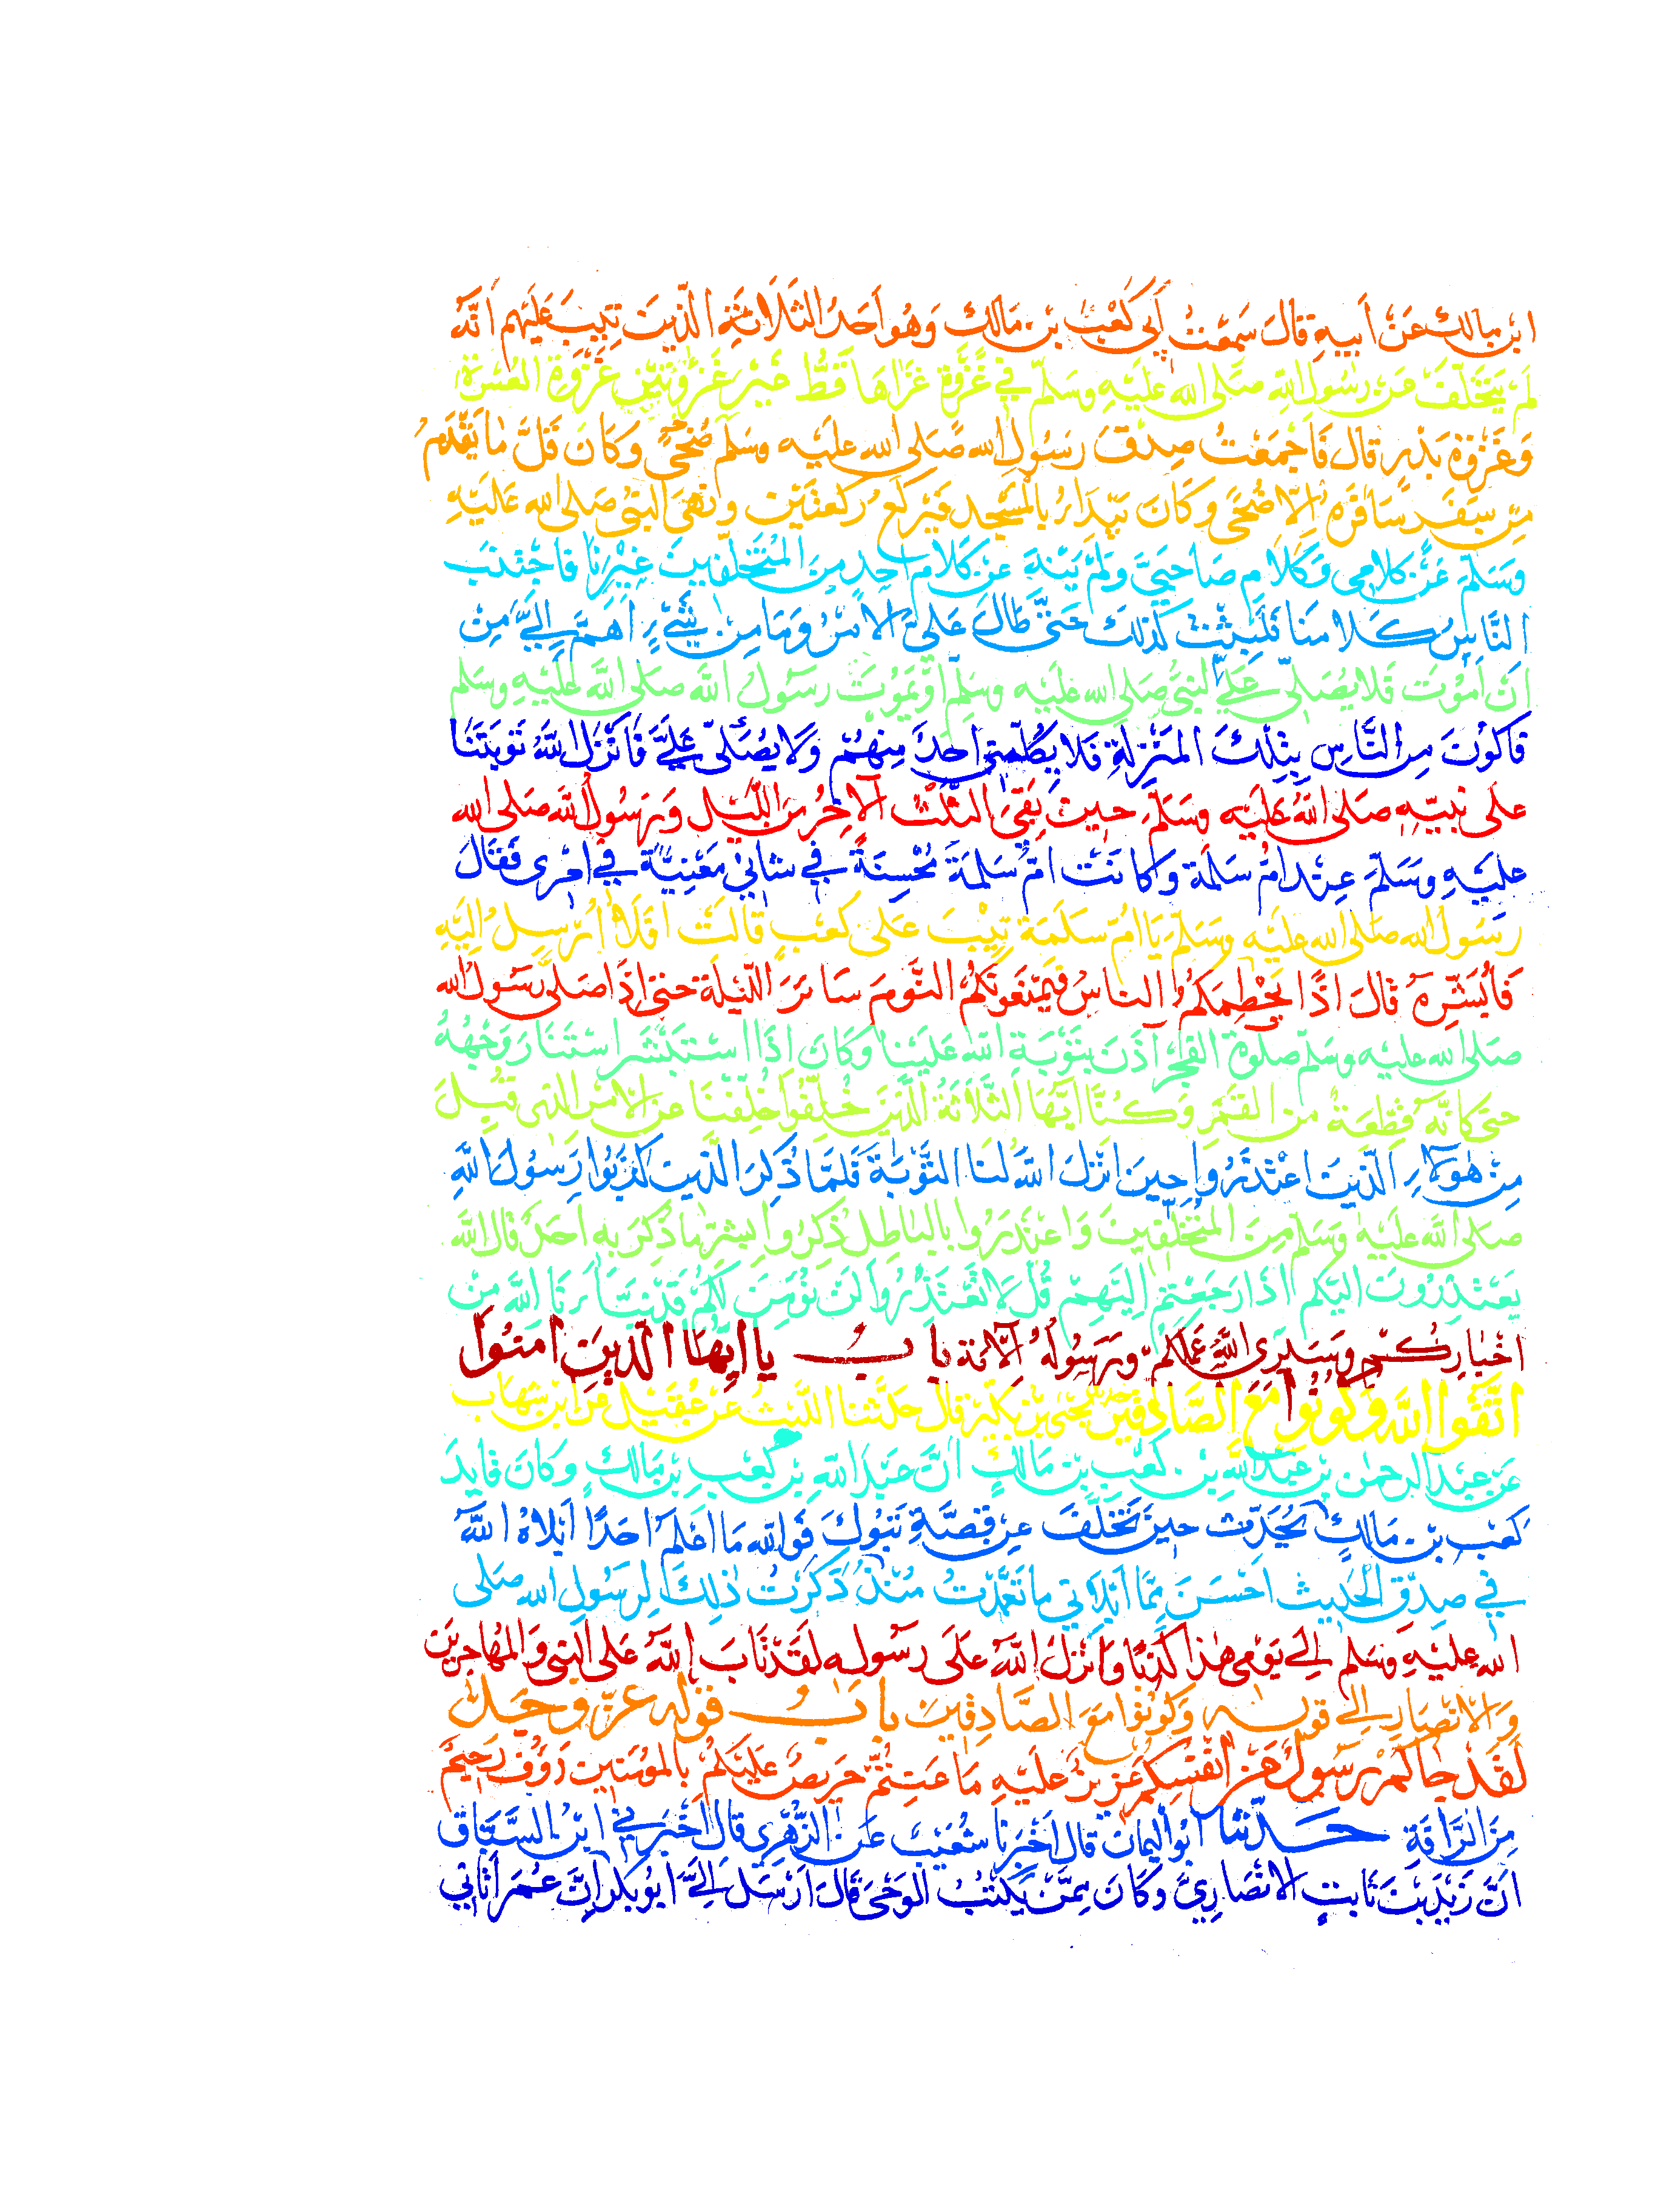 ابن مالك عَنْ اَبيهِ قالَ سَمِعْتُ اَبِي كَعْبَ بن مَالك وَهُوَ اَحَدُ الثَلَاثَةِ الَّذينَ تِيْبَ عَلَيْهِم اَنَّهُ
لَمْ يَتَخَلَّفْ عَنْ رسُول اللهِ صَلى الله عَلَيْهِ وسَلمّ في غَزْوَةٍ غَزَاهَا قَطُّ غَيْرَ غَزْوَتَيْنِ غَزْوَةِ العُسْرَةِ
وَغَزْوَةِ بَدْرٍ قال فَاَجْمَعْتُ صِدْقَ رَسُولِ الله صَلى الله عليَه وسَلمَ ضُحًى وَكَانَ قَلَّ مَا يَقْدَمُ
مِن سَفَرٍ سَافَرَهُ اِلَّا ضُحًى وَكَانَ يَبْدَاُ بالمَسْجِدِ فَيَرْكَعُ رَكعَتَيْن وَنَهَى النبىُّ صَلى الله عَلَيْهِ
وَسَلمَ عَنْ كَلامِى وَكَلامِ صَاحِبَيَّ وَلَمْ يَنْهَ عَنْ كَلَامِ اَحَدٍ مِنَ المُتَخَلّفينَ غَيْرِنَا فاجْتَنَبَ
النَّاسُ كَلامَنَا فَلَبِثْتُ كَذلكَ حَتىّ طَالَ عَلَيَّ الامْرُ وَمَا مِنْ شَيْءٍ اَهَمَّ اِليَّ مِنْ
اَنْ اَمُوْتَ فَلا يُصَلّي عَلَيَّ النبىُّ صَلى الله عليَه وسَلم اَوْ يَمُوْتَ رَسُولُ اللهِ صَلى اللهُ عَلَيْهِ وسَلم
فاكُوْنَ مِن النَّاسِ بِتِلْكَ المَنْزِلَةِ فَلا يُكَلّمُنِى اَحَدٌ مِنهُمْ وَلا يُصَلّى عَلَيَّ فَاَنْزَل اللهُ تَوْبَتَنَا
عَلى نَبيّهِ صَلى اللهُ عَلَيْه وسَلمَ حينَ بَقِيَ الثلثُ الآخِرُ مِنَ اللّيْل وَرَسُولُ اللهِ صَلى الله
عليَهِ وسَلمَ عِنْدَ امّ سَلمَة وَكانَتْ امّ سَلمَةَ مُحْسِنَةً في شَاني مَعْنِيَّةً في اَمْرِى فَقَالَ
رَسُول الله صَلى الله عليَه وَسَلمَ يَا امّ سَلَمَة تِيْبَ عَلى كَعْبٍ قَالَتْ اَفَلَا اُرْسِلُ اِلَيْهِ
فَاُبَشِّرَهُ قالَ اِذًا يَحْطِمَكمُ الناسُ فَيَمْنَعُونَكُمُ النَّوْمَ سَائرَ اللّيْلَة حَتىّ اِذَا صَلى رَسُول الله
صَلى الله عليه وسَلم صلوة الفَجْر آذَنَ بِتَوْبَةِ اللهِ عَلَيْنَا وَكَانَ اِذَا اسْتَبْشَرَ اسْتَنَارَ وَجْهُهُ
حَتى كانَّهُ قِطْعَةٌ من القَمَرِ وَكُنَّا اَيُّهَا الثَّلَاثَةُ الَّذِيْنَ خُلِّفُوا خُلِّفْنَا عن الامْر الذى قُبِلَ
مِنْ هَؤلآءِ الَّذِيْنَ اعْتَذَرُوا حِينَ اَنْزَلَ اللهُ لنَا التَّوْبَةَ فَلمَّا ذُكِرَ الَّذينَ كَذَبُوا رَسُولَ اللهِ
صَلى اللهُ عَلَيْه وَسَلم مِنَ المُتَخَلّفِينَ وَاعْتَذَرُوا بالبَاطِلِ ذُكِرُوا بِشَرّ مَا ذُكِرَ بِهِ اَحَدٌ قال اللهُ
يَعْتَذِرُونَ اليْكم اذَا رَجَعْتُم اِلَيْهِمْ قُلْ لَا تَعْتَذِرُوا لَنْ نُؤْمِنَ لَكُمْ قَدْ نَبَّاَنَا اللهُ مِنْ
اَخْبَارِكُمْ وَسَيَرَى اللهُ عَمَلَكُمْ وَرَسُولُهُ الآية بابُ يا اَيُّهَا الَّذِيْنَ اَمَنُوا
اتَّقُوا اللهَ وَكُوْنُوا مَعَ الصَّادِقِيْنَ يَحْيَى بْنُ بُكَيْرٍ قال حَدَّثَنا اللَّيْثُ عَنْ عُقَيْلٍ عَن ابْنِ شِهَاب
عَنْ عَبْد الرحمن بْنِ عَبْدِ اللهِ بْن كَعْبِ بْن مَالكٍ اَنَّ عَبْدَ اللهِ بْن كَعْبِ بْنِ مَالكٍ وَكانَ قَايِدَ
كَعْبِ بْن مَالكٍ يُحَدِّثُ حينَ تَخَلَّفَ عن قِصَّةِ تَبُوْكَ فَوَاللهِ مَا اَعْلَمُ اَحَدًا اَبْلَاهُ اللهُ
في صِدْقِ الحَديث اَحْسَنَ مِمَّا اَبْلَاني مَا تَعَمَّدْتُ مُنْذُ ذَكَرْتُ ذلِكَ لِرَسُولِ الله صَلى
الله عَليْهِ وسَلم اِلَى يَوْمِى هٰذَا كَذِبًا وَاَنْزَلَ اللهُ عَلَى رَسُولِه لَقَدْ تَابَ اللهُ عَلَى النبى وَالمُهَاجِرِيْنَ
وَالانْصَارِ اِلى قوله وَكُوْنُوا مَعَ الصَّادِقِينَ بابُ قوْله عزّ وجلّ
لَقَدْ جَاكُمْ رَسُولٌ مِنْ اَنْفُسِكُمْ عَزِيزٌ عَلَيْهِ مَا عَنِتُّمْ حَرِيصٌ عَلَيْكُمْ بِالمُؤْمِنِين رَؤُفٌ رَحِيمٌ
مِنَ الرَّافَةِ حَدّثنا ابُو اليمان قَال اَخْبَرَنا شُعَيْبٌ عَن الزُّهْرِى قال اَخْبَرَني ابْنُ السَّبَّاق
اَنَّ زَيْدَ بْنَ ثَابتٍ الانْصَارِيَّ وَكَانَ مِمَّنْ يَكْتُبُ الوَحْىَ قالَ اَرْسَلَ اِلَيَّ ابُو بَكرٍ اِنَّ عُمَرَ اَتَاني